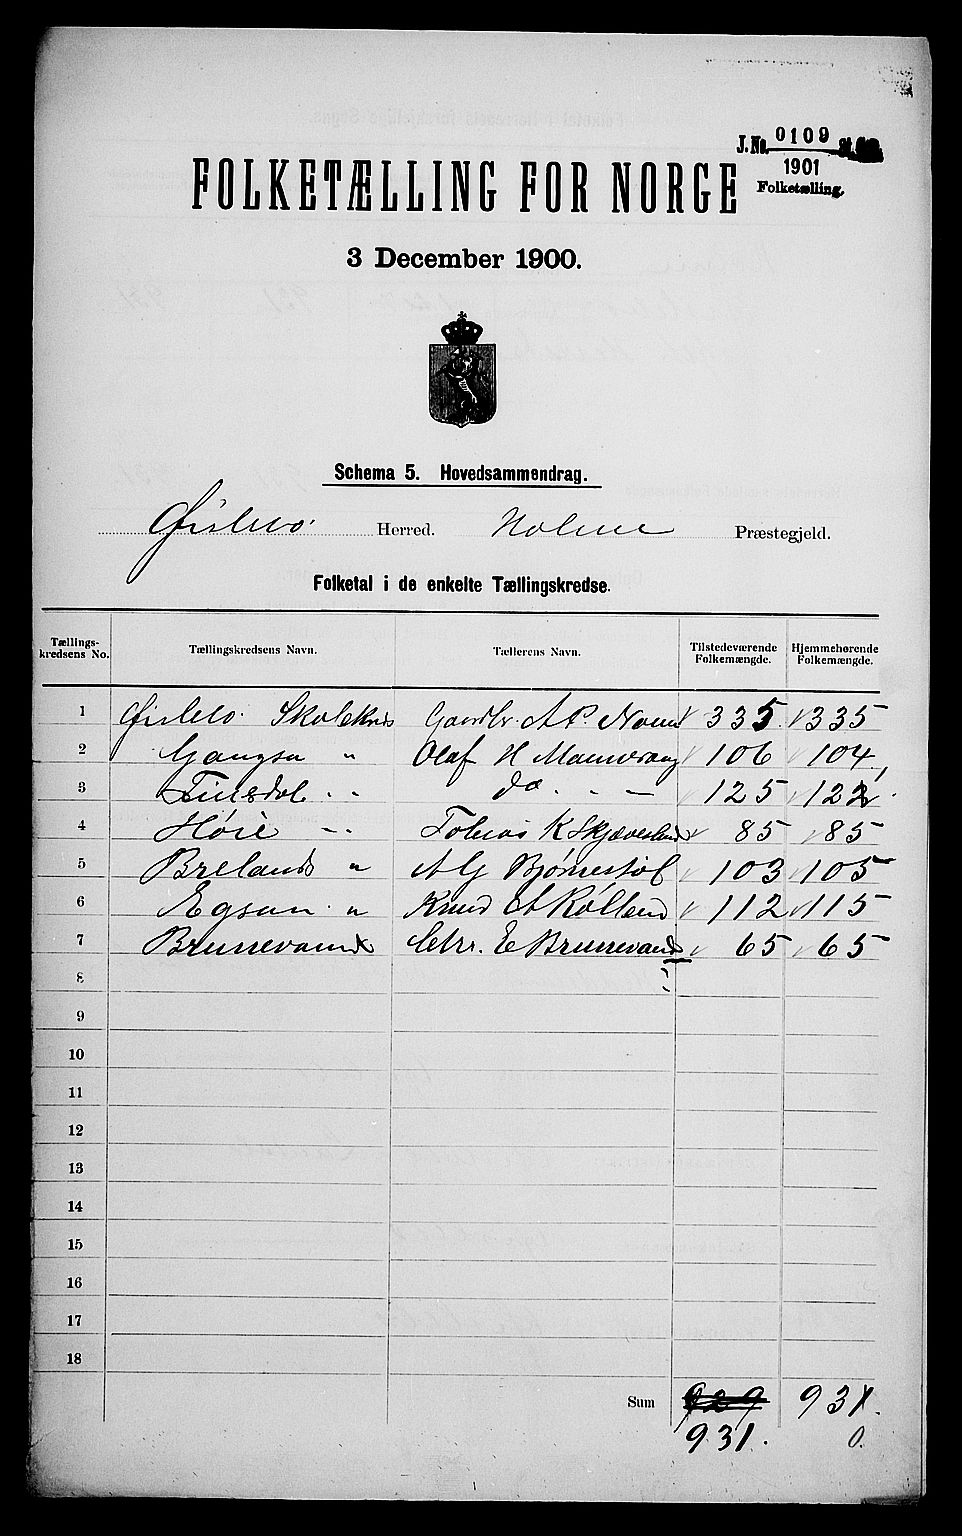 J.No. 0109
1901
Folketælling.
FOLKETÆLLING FOR NORGE
3 December 1900.
Schema 5. Hovedsammendrag.
Øislebø Herred. Holme Præstegjeld.
Folketal i de enkelte Tællingskredse.
Tællings-kredsens No. Tællingskredsens Navn. Tællerens Navn. Tilstedeværende Folkemængde. Hjemmehørende Folkemængde.
1 Øislebø Skolekreds Gaardbr. A P. 335 335
2 " Olaf H 106 104
3 Finsdal " do. " — 125 122
4 Høie " Tobias K Skjævesland 85 85
5 Breland " A G Bjørnestøl 103 105
6 Egsaa " Knud A Kølland 112 115
7 Brunevand Chr. E Brunevand 65 65
8
9
10
11
12
13
14
15
16
17
18
Sum 929 931.
931. 0.